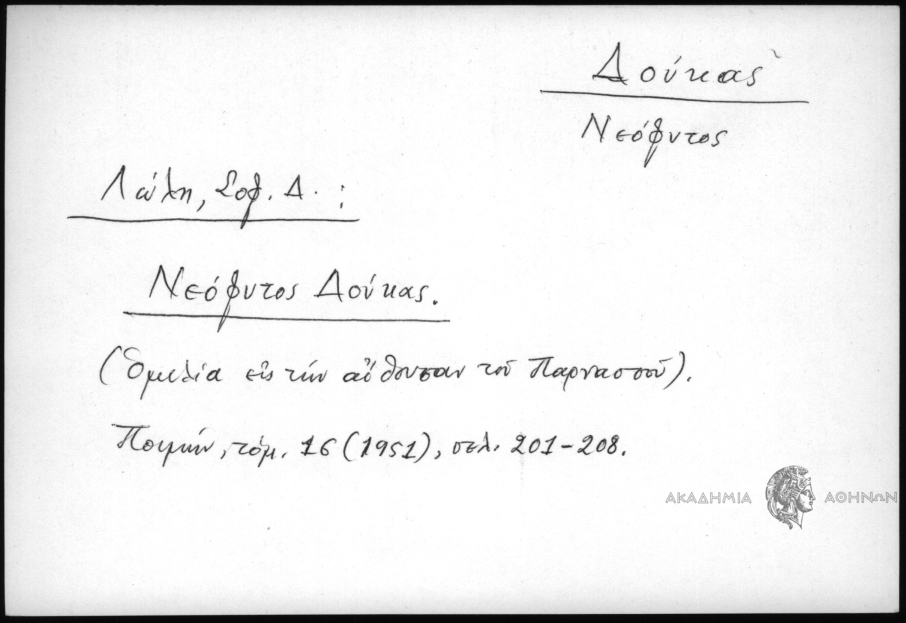 Δούκας
Νεόφυτος
Λώλη, Σοφ. Δ. :
Νεόφυτος Δούκας.
(Ὁμιλία εἰς τήν αἴθουσαν τοῦ Παρνασσοῦ).
Ποιμήν, τόμ. 16 (1951), σελ. 201-208.
ΑΚΑΔΗΜΙΑ ΑΘΗΝΩΝ